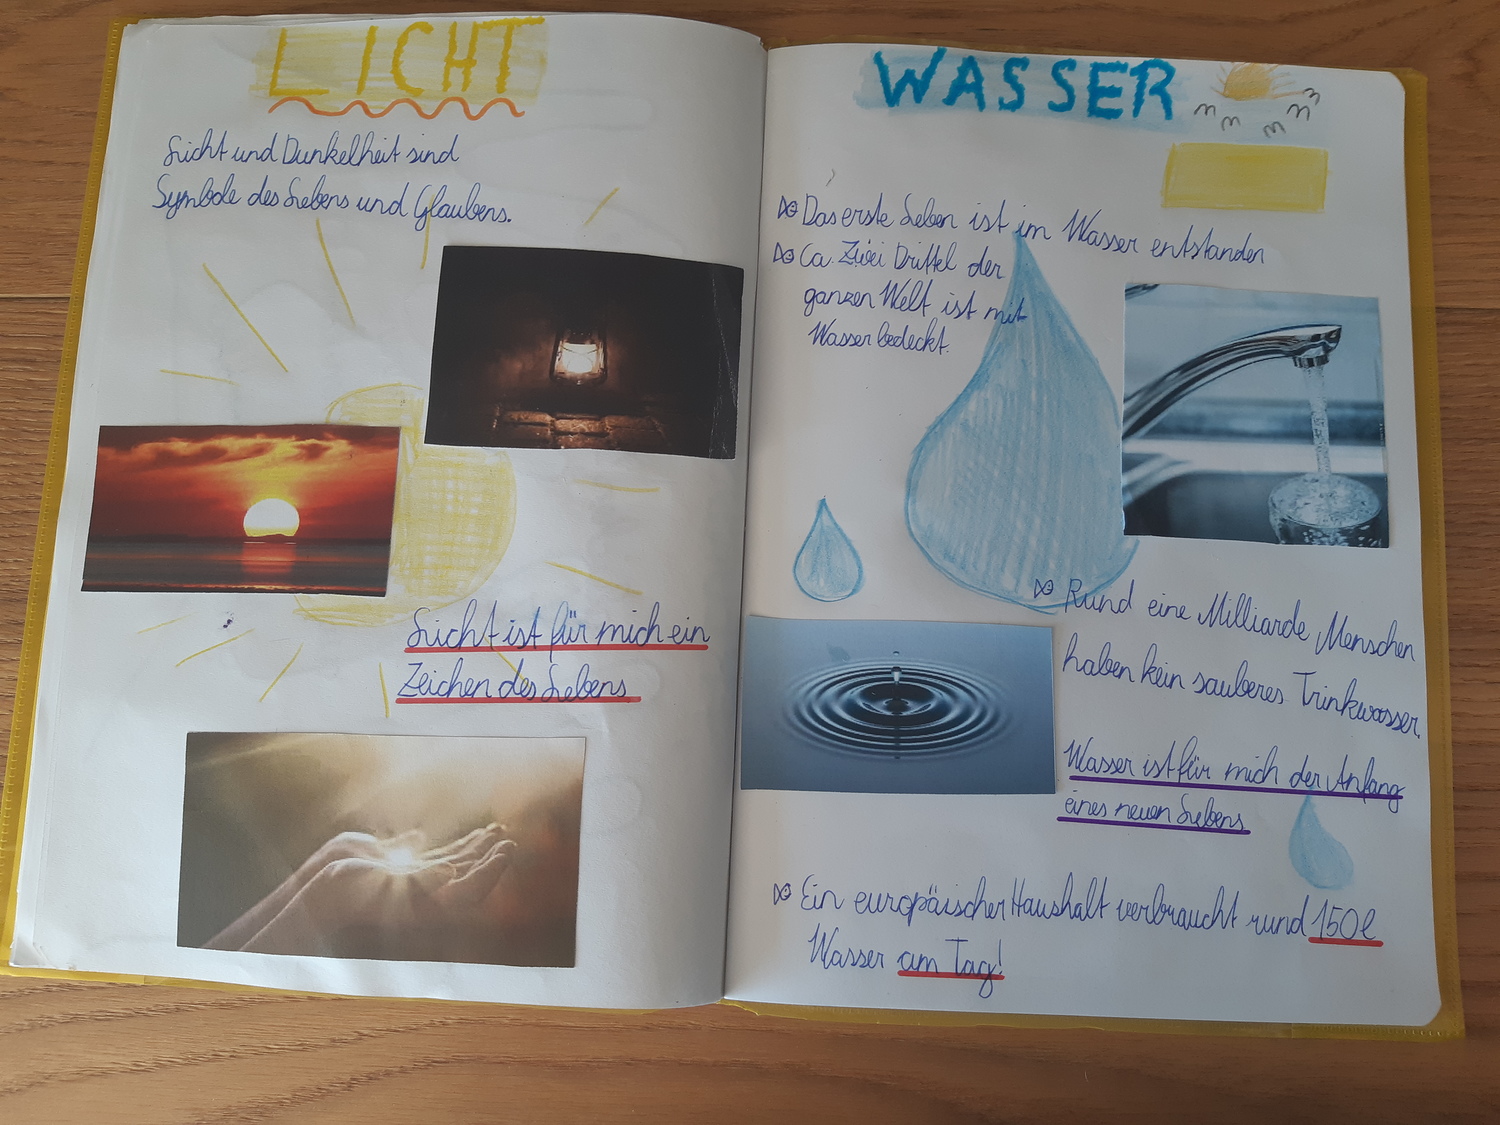 LICHT
Licht und Dunkelheit sind
Symbole des Lebens und Glaubens.
Licht ist für mich ein
Zeichen des Lebens
WASSER
Das erste Leben ist im Wasser entstanden
Ca. Zwei Drittel der
ganzen Welt ist mit
Wasser bedeckt.
Rund eine Milliarde Menschen
haben kein sauberes Trinkwasser.
Wasser ist für mich der Anfang
eines neuen Lebens
Ein europäischer Haushalt verbraucht rund 150l
Wasser am Tag!